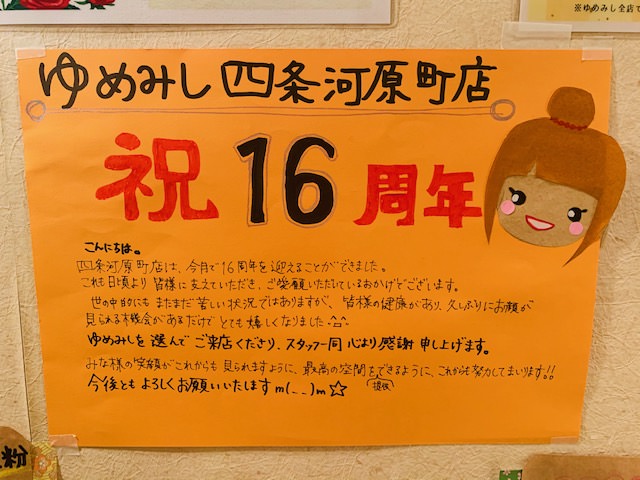 ※ゆめみし全店で
ゆめみし 四条河原町店
祝 16 周年
こんにちは。
四条河原町店は、今月で16周年を迎えることができました。
これも日頃より皆様に支えていただき、ご愛顧いただいているおかげでございます。
世の中的にもまだまだ苦しい状況ではありますが、皆様の健康があり、久しぶりにお顔が
見られる機会があるだけでとても嬉しくなりました^^
ゆめみしを選んでご来店くださり、スタッフ一同心より感謝申し上げます。
みな様の笑顔がこれからも見られますように、最高の空間をできるように、これからも努力してまいります!!
(提供)
今後ともよろしくお願いいたしますm(_ _)m☆
粉